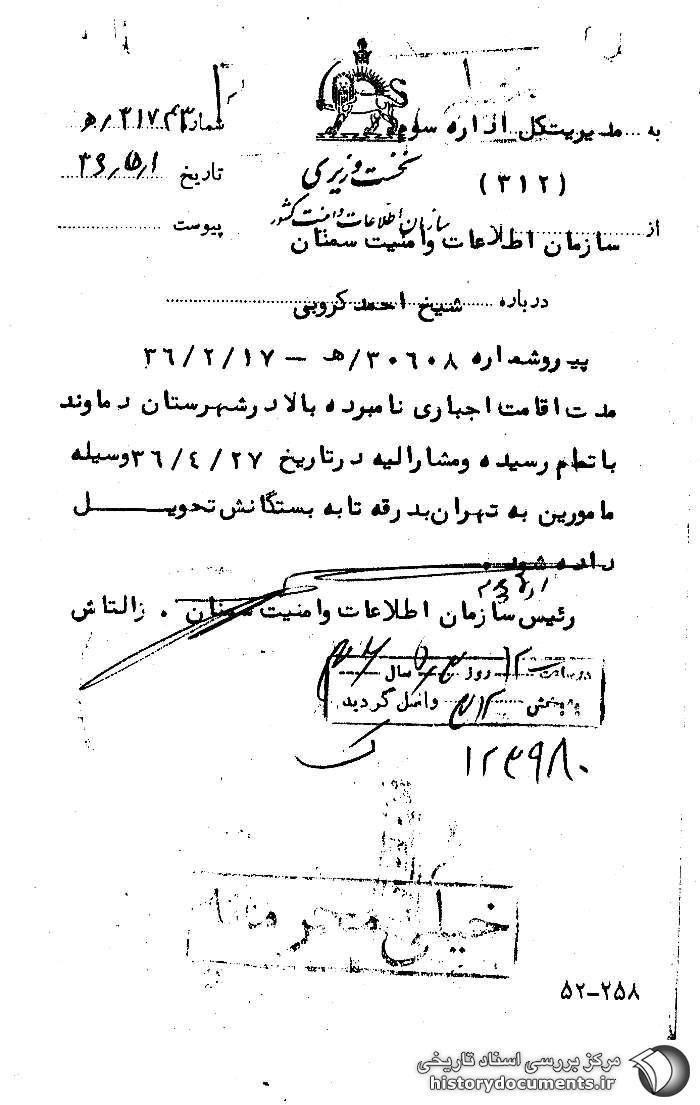 به مدیریت کل اداره سوم
(۳۱۲)
نخست وزیری
سازمان اطلاعات و امنیت کشور
شماره
تاریخ ۳۶٫۵٫۱
پیوست
از سازمان اطلاعات وامنیت سمنان
درباره شیخ احمد کروبی
پیروشماره ۳۰۶۰۸/هـ – ۳۶/۲/۱۷
مدت اقامت اجباری نامبرده بالا درشهرستان دماوند
باتمام رسیده ومشارالیه درتاریخ ۳۶/۴/۲۷ وسیله
مامورین به تهران بدرقه تا به بستگانش تحویل
داده شود.
رئیس سازمان اطلاعات وامنیت سمنان . زالتاش
در ساعت روز سال
به بخش ۳۱۲ واصل گردید
خیلی محرمانه
۵۲-۲۵۸
مرکز بررسی اسناد تاریخی
historydocuments.ir